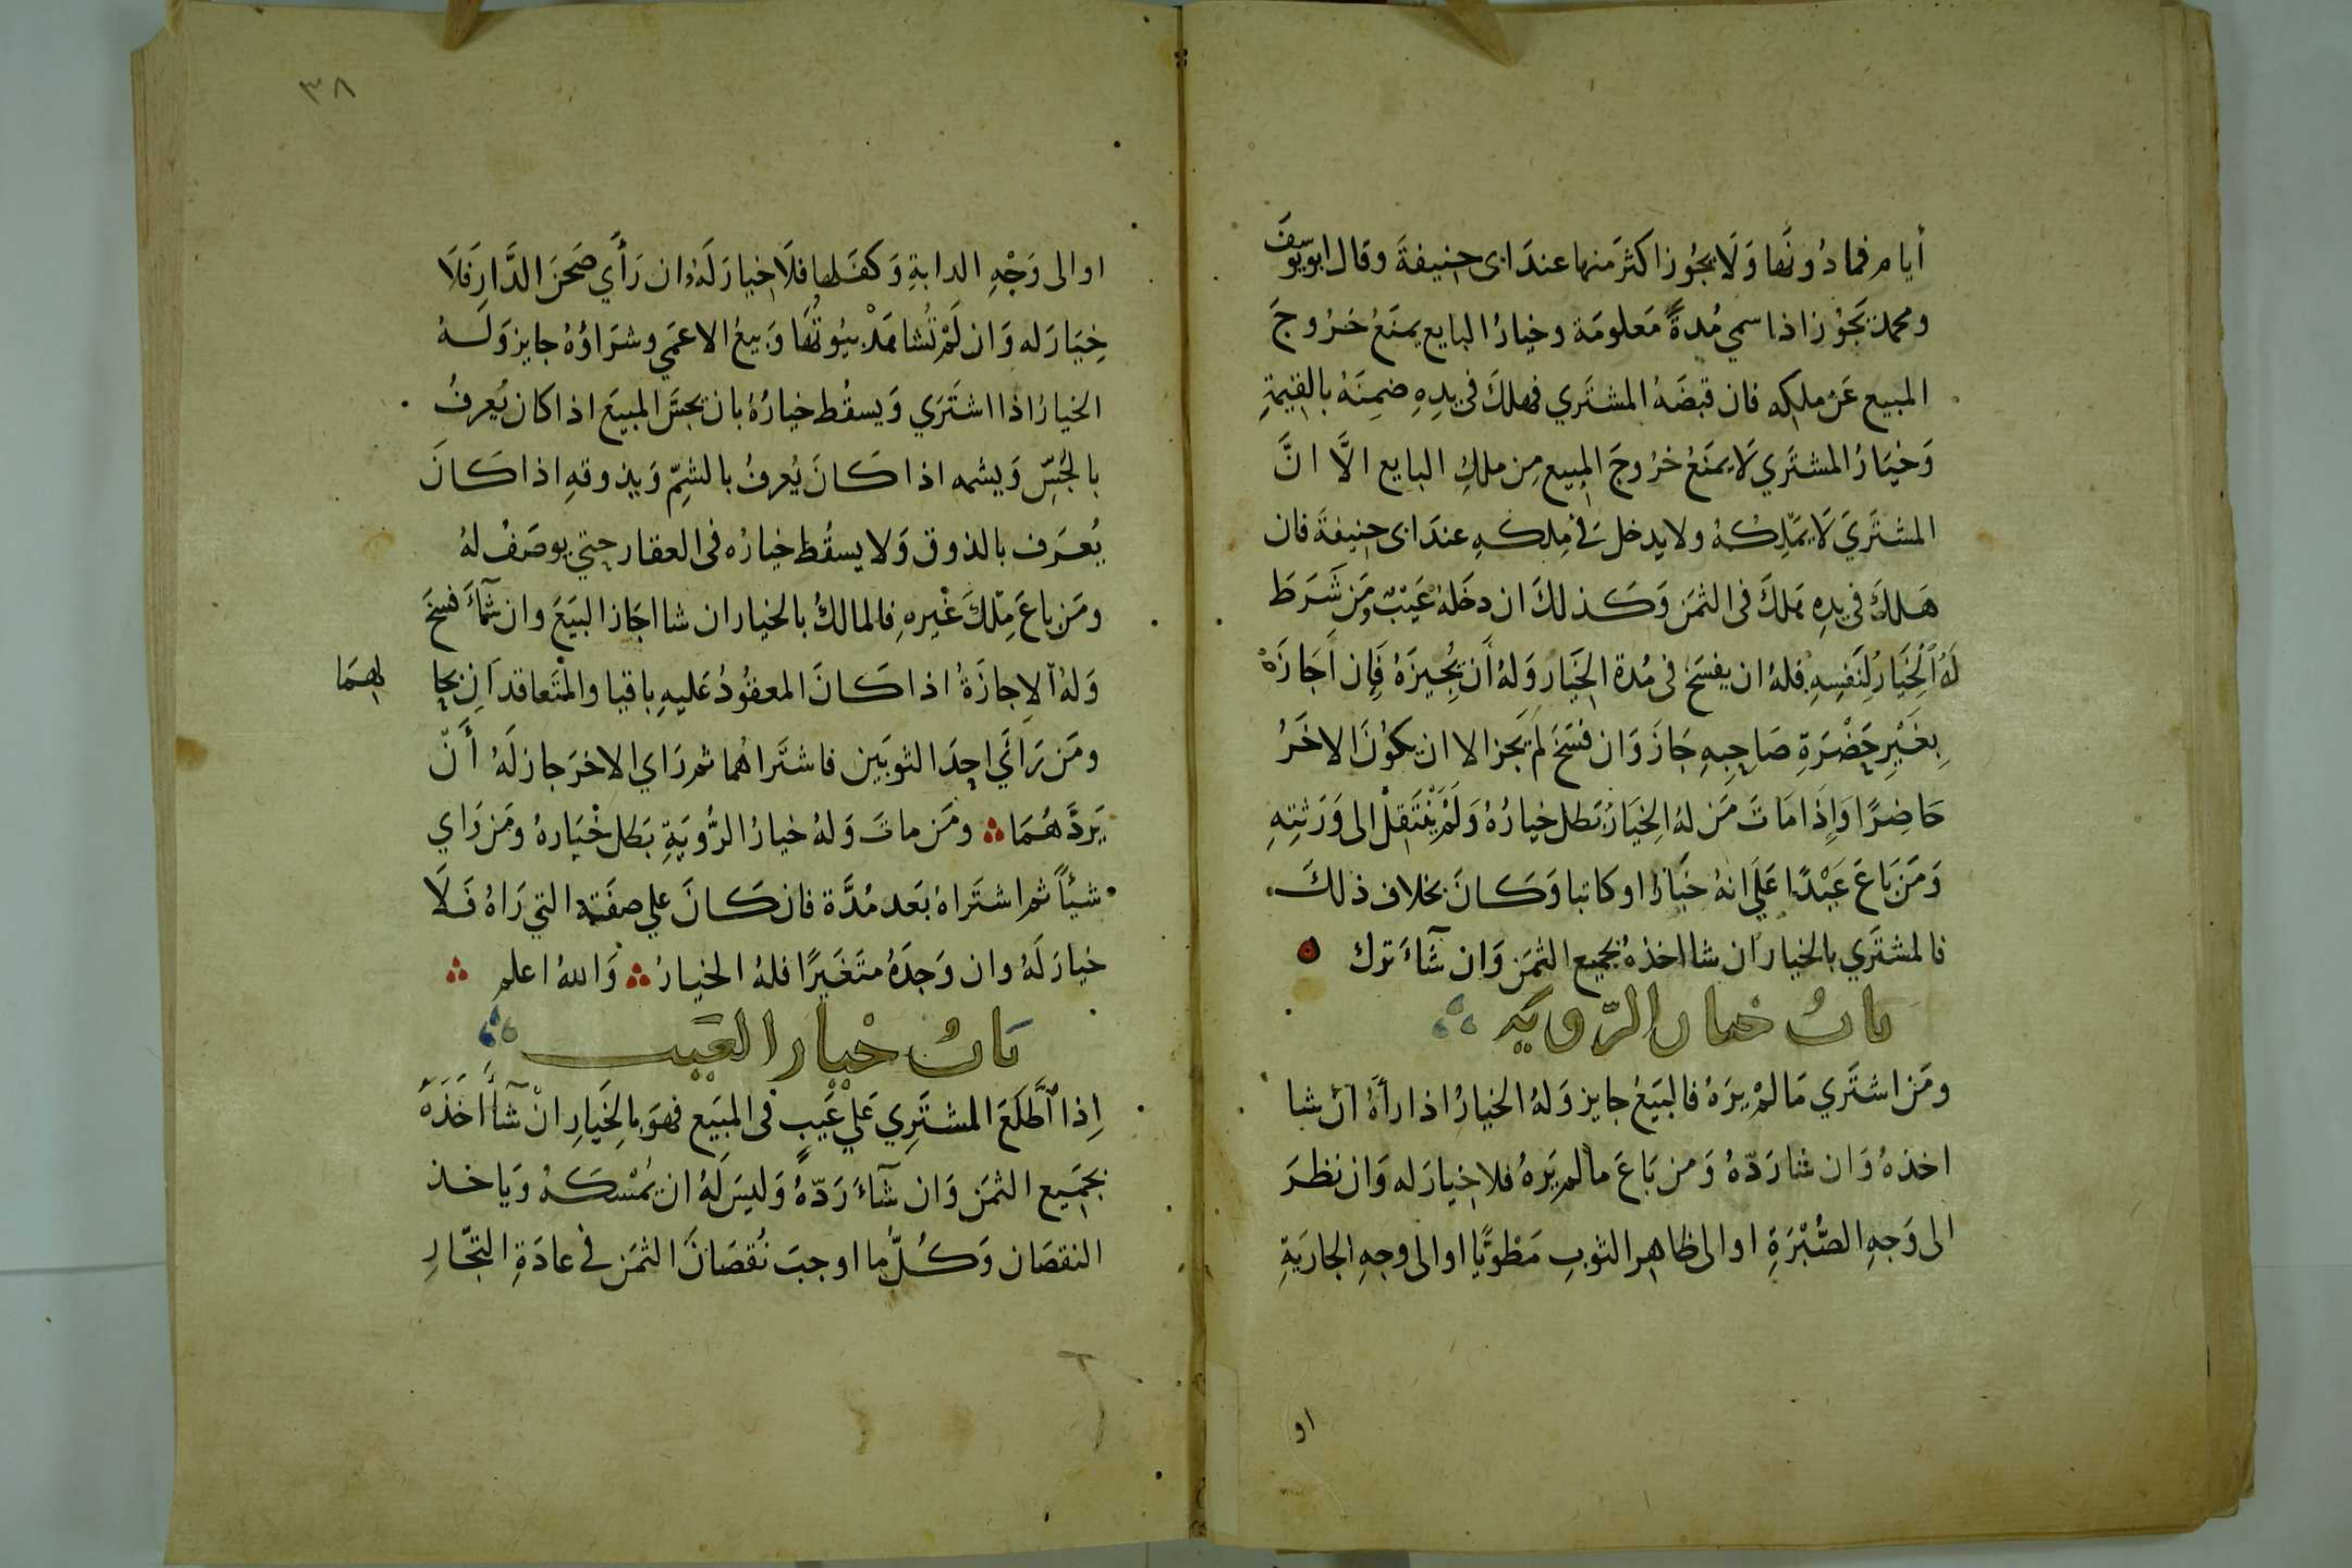 أيام فما دُونَها وَلَا يجُوز اكثرَ منها عندَ ابى حنيفةَ وقال ابو يوسفَ
ومحمد يَجُوْز اذا سمي مُدةً مَعلومَة وخيارُ البايع يمنَعُ خرُوجَ
المبيع عَن ملكِه فان قبضَهُ المشتَري فهلكَ فى يدِهِ ضمِنَهُ بالقيمَةِ
وَخيَارُ المشتَري لَا يمنَعُ خرُوجَ المبيع مِن ملكِ البايع الَّا انَّ
المشتَريَ لَا يمَلِكُهُ ولا يدخل في مِلكهِ عندَ ابى حنيفةَ فان
هَلكَ فى يدِه هَلكَ فى الثمَن وَكَذلكَ ان دخَلهُ عَيْبٌ ومَن شَرَطَ
لَهُ اَلْخِيَارُ لِنَفسِهِ فلهُ ان يفسَخَ فى مُدة الخِيَارِ وَلهُ أن يُجِيزَهُ فَإِن أجَازَهُ
بِغَيْرِ حَضْرَةِ صَاحِبِهِ جَازَ وَان فسَخَ لَم يجز الا ان يكوُنَ الاخَرُ
حَاضِرًا وَإِذَا مَاتَ مَن لهُ الخِيَارُ بَطل خيارُهُ وَلَمْ يَنْتَقِلْ الى وَرَثتِهِ
وَمَن بَاعَ عَبْدًا عَلَي انهُ خَبَّازٌ او كاتبا وَكَانَ بخلاف ذلكَ
فالمشتَري بالخيار ان شا اخذهُ بجميع الثمَن وَان شآءَ ترك
بابُ خيار الرّويَه
ومَن اشتَري مَا لمْ يرَهُ فالبَيعُ جايز وَلهُ الخيارُ اذا رأَهُ ان شا
اخذهُ وَان شا رَدّهُ وَمن بَاعَ ما لم يَرهُ فلا خيارَ له وَان نظرَ
الى وَجهِ الصُّبْرَةِ او الى ظاهِر الثوبِ مَطْوِيًّا او الى وجهِ الجاريَةِ
او
٣٨
او الى وَجْهِ الدابةِ وَكفَلها فلَا خيارَ لَهُ وان رَأَي صَحنَ الدَّارِ فَلَا
خِيَارَ له وَان لَمْ تُشاهَدْ بيُوتُهَا وَبيعُ الاعمَي وشرَاؤُهُ جايز وَلَهُ
الخيارُ اذا اشتَرَي وَيسقُط خيارُهُ بان يجسَّ المبيَعَ اذا كان يُعرفُ
بالجُسِّ وَيشمه اذا كَانَ يُعرفُ بالشمِّ وَيذوقهِ اذا كَانَ
يُعرَف بالذوق وَلا يسقُط خيارُه فى العقار حتي يوصَفُ لهُ
ومَن باعَ مِلكَ غَيْرِهِ فالمالكُ بالخيار ان شا اجَاز البيَعَ وان شآءَ فسَخَ
وَلهُ الاجازَةُ اذا كَانَ المعقُودُ عَليهِ باقيا والمتَعاقدَانِ بحا
لهمَا
ومَن رَأَي احِدَ الثوبَين فاشتَراهُما ثم رَاي الاخرَ جاز لَهُ أَنّ
يَردَّهُمَا ومَن ماتَ وَلهُ خيارُ الرُّويَةِ بَطل خْيَارهُ ومَن رَاي
شيئاً ثم اشتَراهُ بَعَد مُدَّة فان كَانَ علي صفَته التي رَاهُ فَلَا
خيارَ لَهُ وان وَجَدَهُ متَغَيرًا فلهُ الخيارُ وَاللهُ اعلم
بَابُ خْيار العَيب
اِذا اَطَّلَعَ المشتَرِي عَليْ عَيبٍ فى المبَيع فهوَ بالخِيَارِ انْ شآءَ اخَذَهُ
بجمَيع الثمَن وَان شآءَ رَدّهُ وَليسَ لَهُ ان يُمْسكَهُ وَياخذ
النقصَان وَكُلُّ ما اوجبَ نُقصَانَ الثمَن في عادَةِ التجّارِ